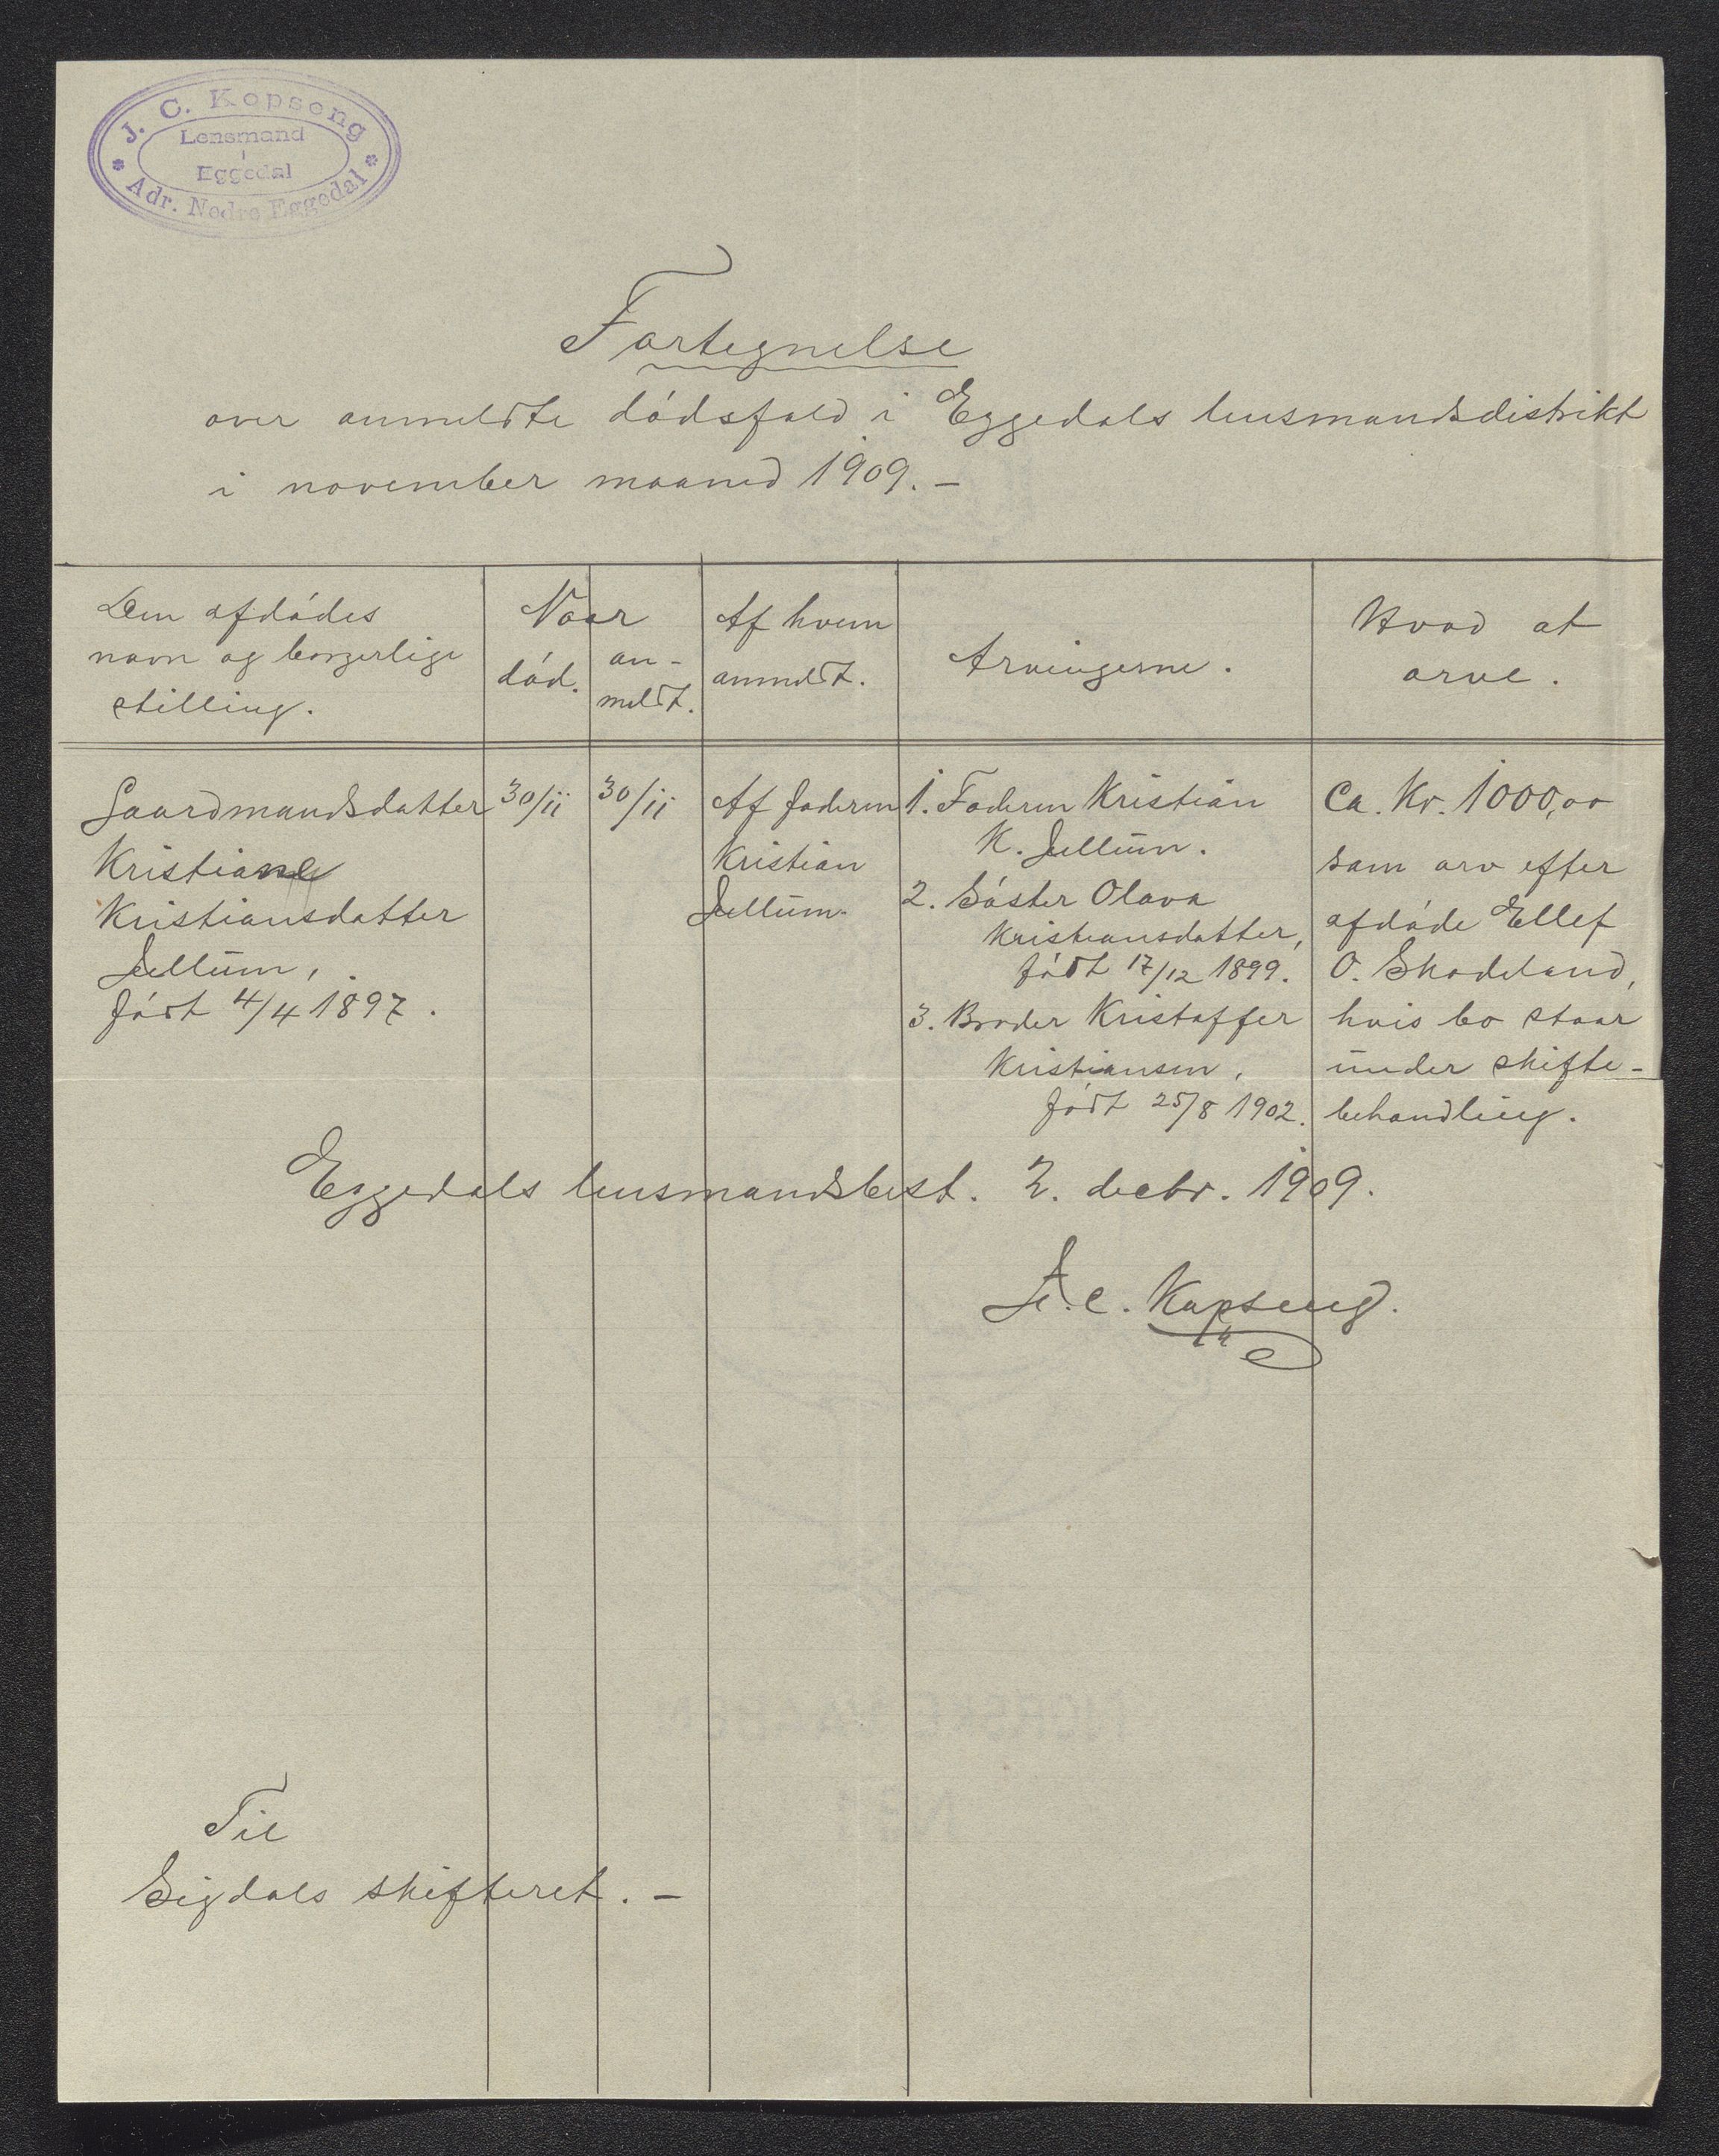 J. C. Kopseng
Lensmand
i
Eggedal
Adr. Nedre Eggedal
Fortegnelse
over anmeldte dödsfald i Eggedals lensmandsdistrikt
i november maaned 1909. –
Den afdödes
navn og borgerlige
stilling.
Naar
död.
an-
meldt.
Af hvem
anmeldt.
Arvingerne.
Hvad at
arve.
Gaardmandsdatter
Kristiane
Kristiansdatter
Jellum,
födt 4/4 1897.
30/11
30/11
Af faderen
Kristian
Jellum.
1. Faderen Kristian
K. Jellum.
2. Söster Olava
Kristiansdatter,
födt 17/12 1899.
3. Broder Kristoffer
Kristiansen,
födt 25/8 1902.
Ca. Kr. 1000,00
som arv efter
afdöde Ellef
O. Skodeland,
hvis bo staar
under skifte-
behandling.
Eggedals lensmandsbest. 2. decbr. 1909.
J. C. Kopseng.
Til
Sigdals skifteret. –